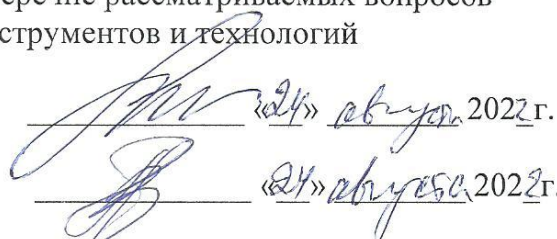 еречне рассматриваемых вопросов
струментов и технологий
«24» августа 2022г.
«24» августа 2022г.